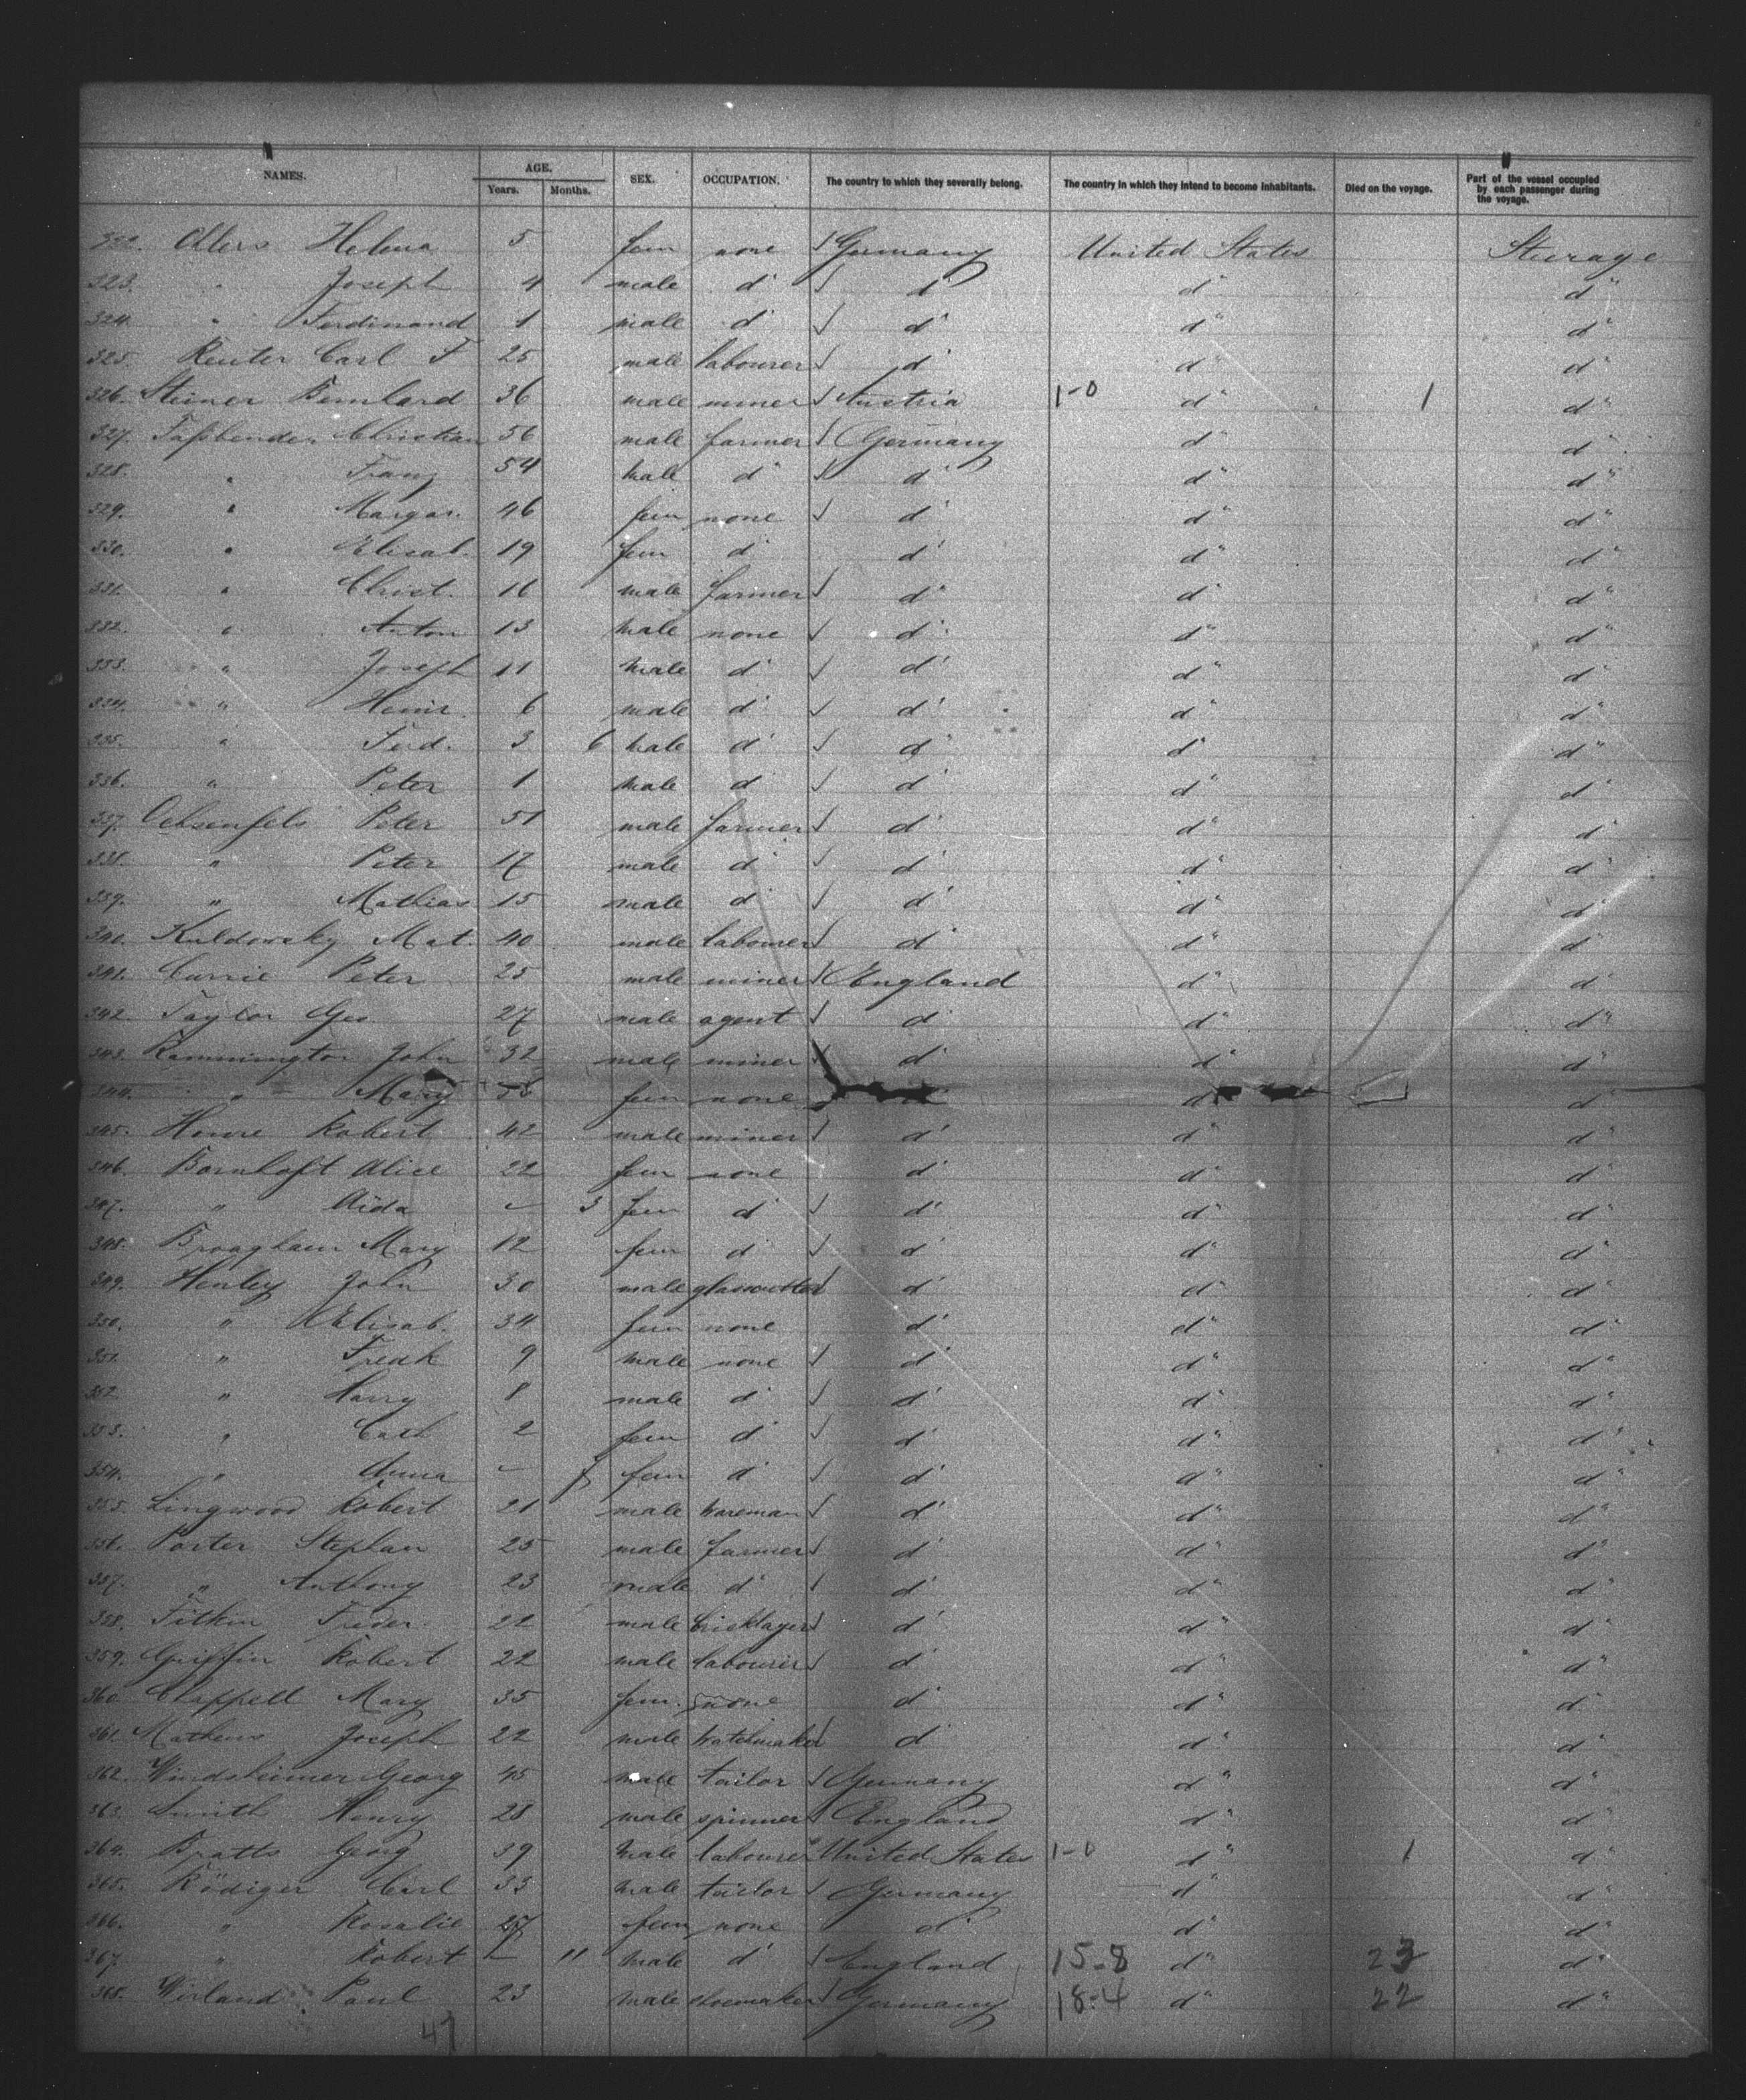 NAMES. AGE. Years. Months. SEX. OCCUPATION. The country to which they severally belong. The country in which they intend to become inhabitants. Died on the voyage. Part of the vessel occupied by each passenger during the voyage.
322. Ollers Helena 5 fem none √ Germany United States Steerage
323. " Joseph 4 male d° √ d° d° d°
324. " Ferdinand 1 male d° √ d° d° d°
325. Reuter Carl F 25 male labourer √ d° d° d°
326. Steiner Bernhard 36 male miner √ Austria 1-0 d° 1 d°
327. Faßbender Christian 56 male farmer √ Germany d° d°
328. " Franz 54 male d° √ d° d° d°
329. " Margar. 46 fem none √ d° d° d°
330. " Elisab. 19 fem d° d° d° d°
331. " Christ. 16 male farmer √ d° d° d°
332. " Anton 13 male none √ d° d° d°
333. " Joseph 11 male d° √ d° d° d°
334. " Heinr. 6 male d° √ d° d° d°
335. " Ferd. 3 6 male d° √ d° d° d°
336. " Peter 1 male d° √ d° d° d°
337. Ochsenfels Peter 51 male farmer √ d° d° d°
338. " Peter 17 male d° √ d° d° d°
339. " Mathias 15 male d° √ d° d° d°
340. Kuldowsky Mat. 40 male labourer √ d° d° d°
341. Currie Peter 25 male miner √ England d° d°
342. Taylor Geo 27 male agent √ d° d° d°
343. Rammington John 32 male miner √ d° d° d°
344. " Mary fem none d° d°
345. Howe Robert 42 male miner √ d° d° d°
346. Bornhoft Alice 22 fem none d° d° d°
347. " Aida - 3 fem d° √ d° d° d°
348. Broagham Mary 12 fem d° √ d° d° d°
349. Henley John 30 male glasscutter √ d° d° d°
350. " Elisab. 34 fem none d° d° d°
351. " Fredk 9 male none √ d° d° d°
352. " Harry 8 male d° √ d° d° d°
353. " Cath 2 fem d° √ d° d° d°
354. " Anna - fem d° √ d° d° d°
355. Lingwood Robert 21 male wareman √ d° d° d°
356. Porter Stephan 25 male farmer √ d° d° d°
357. " Anthony 23 male d° √ d° d° d°
358. Fitkin Freder. 22 male bricklayer √ d° d° d°
359. Griffin Robert 22 male labourer √ d° d° d°
360. Chappell Mary 35 fem. none d° d° d°
361. Mathews Joseph 22 male watchmaker √ d° d° d°
362. Windsheimer Georg 45 male tailor √ Germany d° d°
363. Smith Henry 28 male spinner √ England d° d°
364. Bratts Georg 39 male labourer United States 1-0 d° 1 d°
365. Rödiger Carl 35 male tailor √ Germany d° d°
366. " Rosalie 27 fem none d° d° d°
367. " Robert - 11 male d° √ England 15-8 d° 23 d°
368. Wirland Paul 23 male shoemaker √ Germany 18-4 d° 22 d°
47